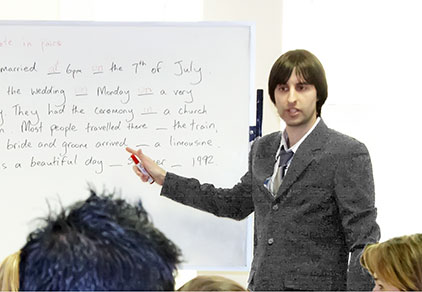 in pairs
married at 6pm on the 7th of July.
the wedding on Monday in a very
They had the ceremony in a church
Most people travelled there __ the train,
bride and groom arrived __ a limousine.
s a beautiful day __ S er __ 1992.